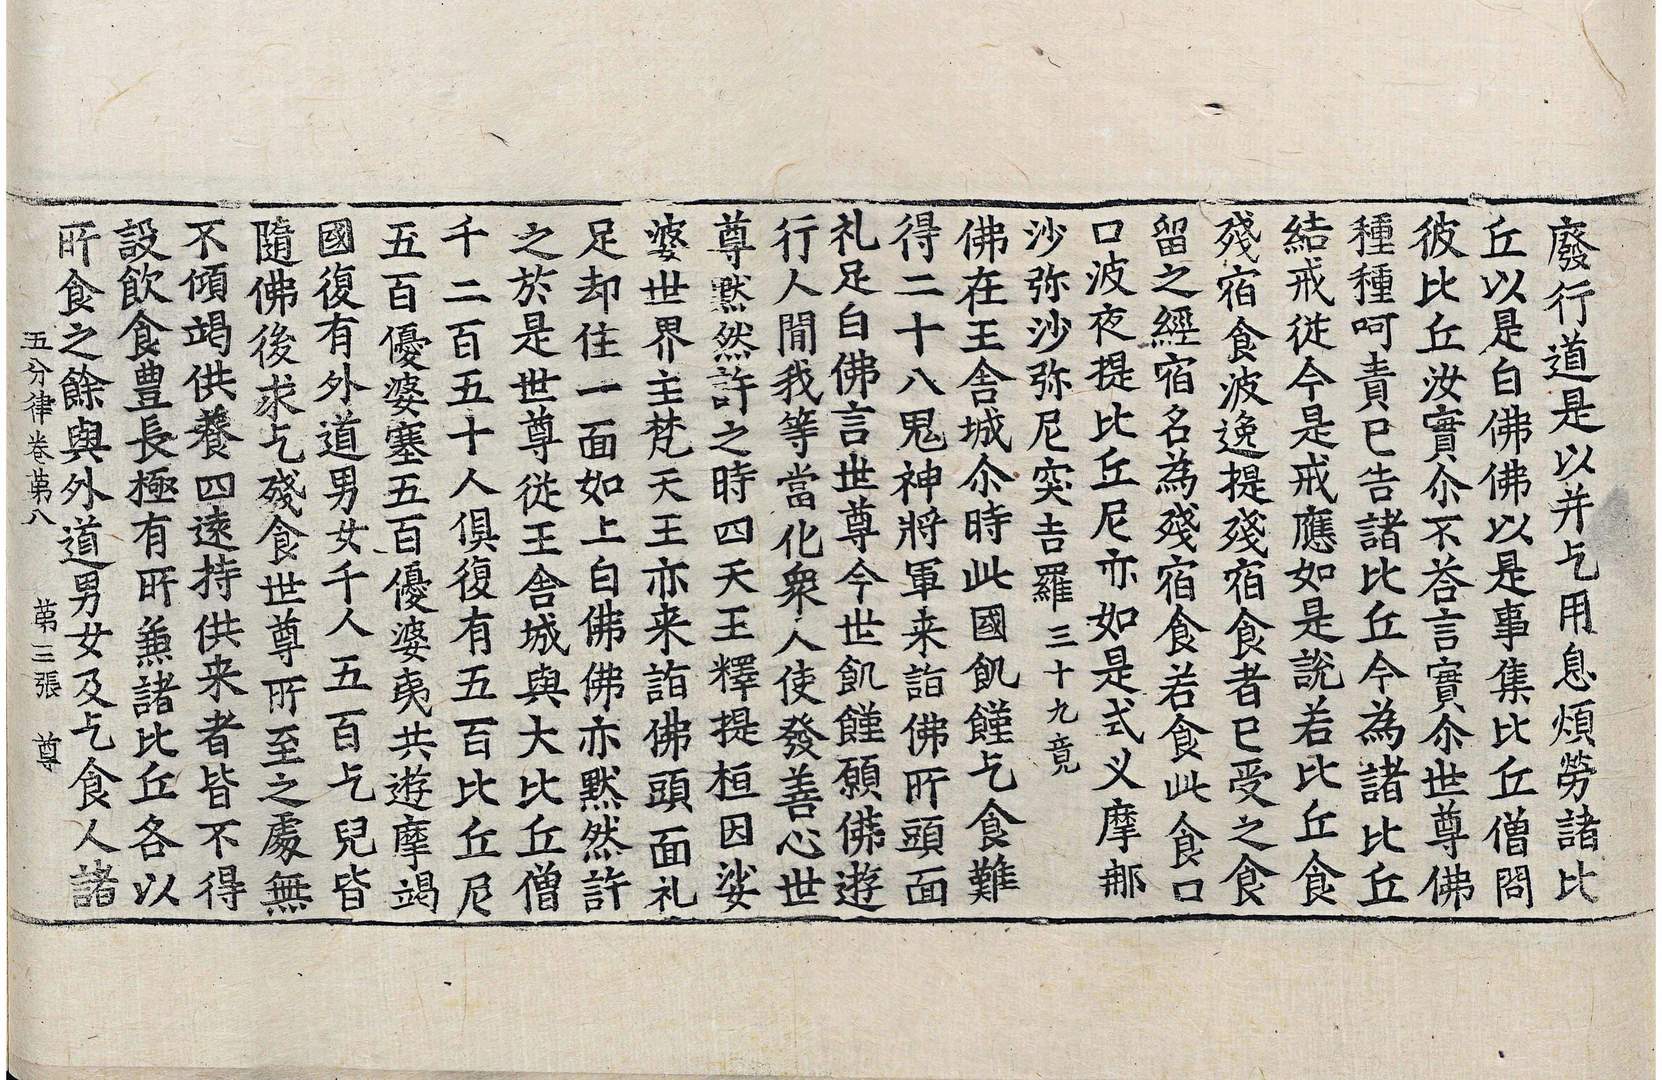 廢行道是以并乞用息煩勞諸比
丘以是白佛佛以是事集比丘僧問
彼比丘汝實尒不荅言實尒世尊佛
種種呵責已告諸比丘今為諸比丘
結戒從今是戒應如是說若比丘食
殘宿食波逸提殘宿食者已受之食
留之經宿名為殘宿食若食此食口
口波夜提比丘尼亦如是式叉摩那
沙弥沙弥尼突吉羅三十九竟
佛在王舍城尒時此國飢饉乞食難
得二十八鬼神將軍来詣佛所頭面
礼足白佛言世尊今世飢饉願佛遊
行人間我等當化衆人使發善心世
尊默然許之時四天王釋提桓因娑
婆世界主梵天王亦来詣佛頭面礼
足却住一面如上白佛佛亦默然許
之於是世尊從王舍城與大比丘僧
千二百五十人俱復有五百比丘尼
五百優婆塞五百優婆夷共遊摩竭
國復有外道男女千人五百乞兒皆
隨佛後求乞殘食世尊所至之處無
不傾竭供養四遠持供来者皆不得
設飲食豊長極有所兼諸比丘各以
所食之餘與外道男女及乞食人諸
五分律卷第八 第三張 尊